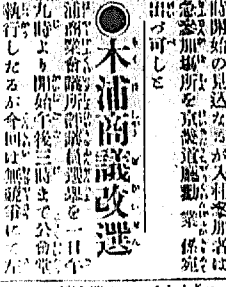 時開始の見込なるが入札参加者は
急参加場所を京義道廳勸業係宛
出づ可しと
●木浦商議改選
浦商業會議所評議員選擧を一日午
九時より開始午後三時まで公會堂
執行したるが今回は無競爭にて左